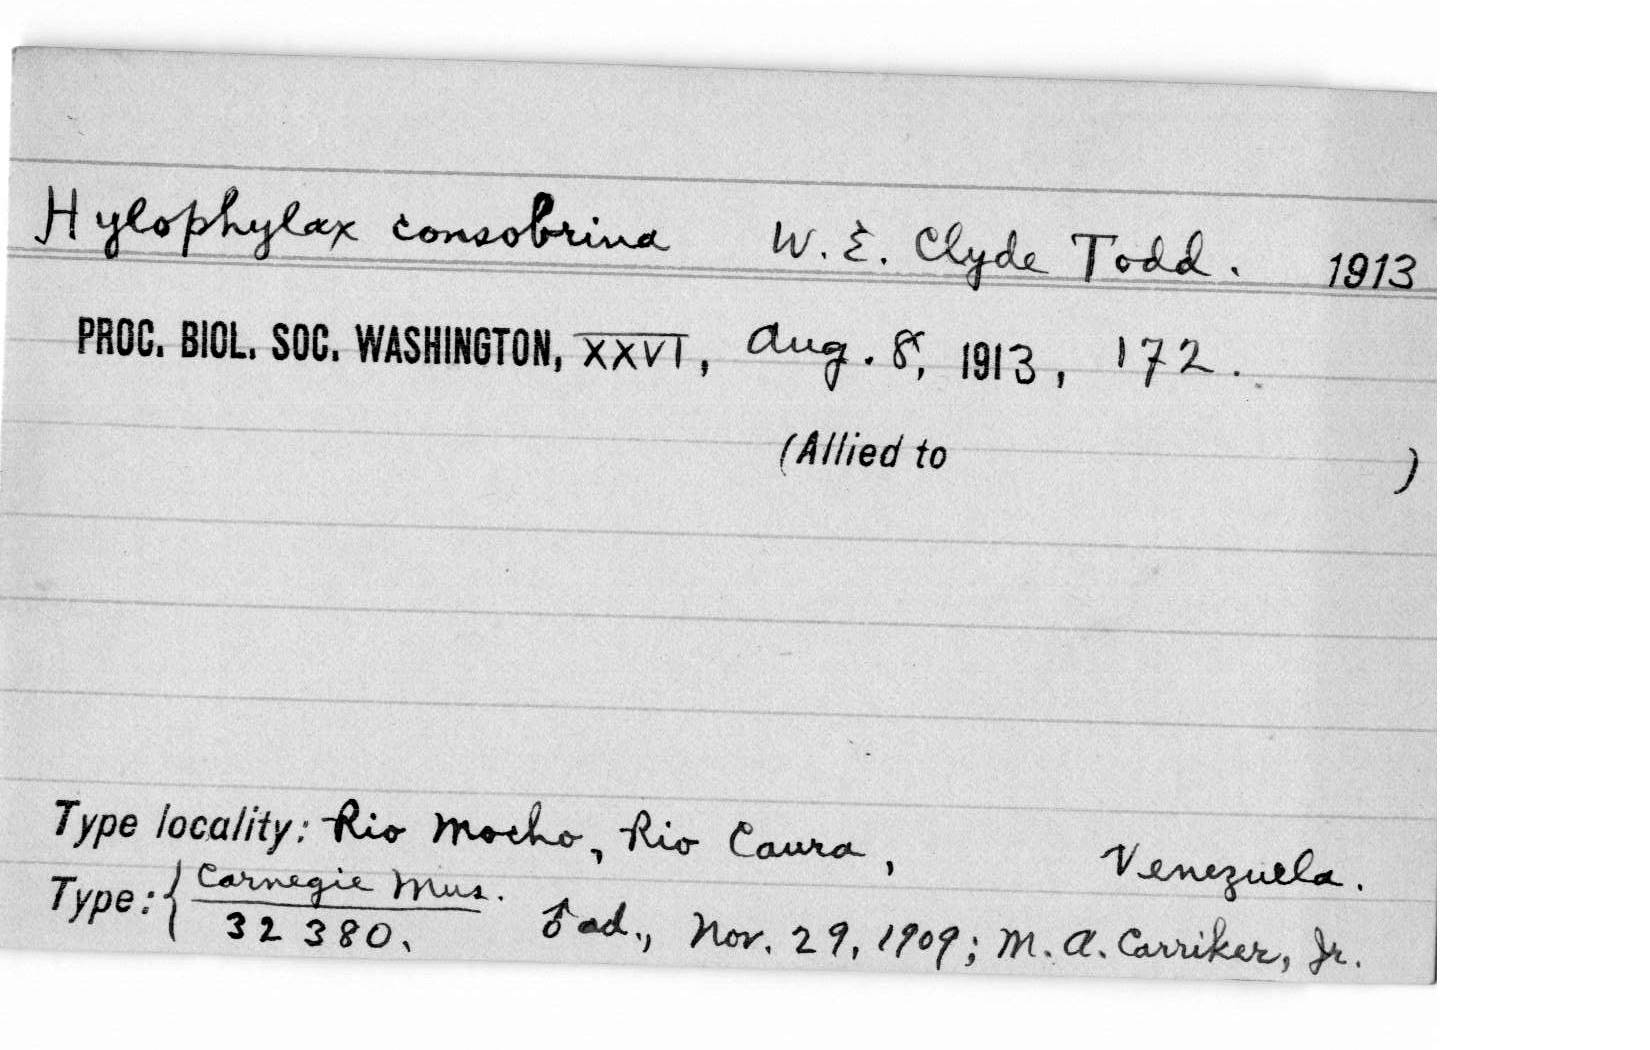 Hylophylax consobrina W. E. Clyde Todd. 1913
PROC. BIOL. SOC. WASHINGTON, XXVI, Aug. 8, 1913, 172.
(Allied to )
Type locality: Rio Mocho, Rio Caura, Venezuela.
Type: { Carnegie Mus.
32380. ♂ ad., Nov. 29, 1909; M. A. Carriker, Jr.